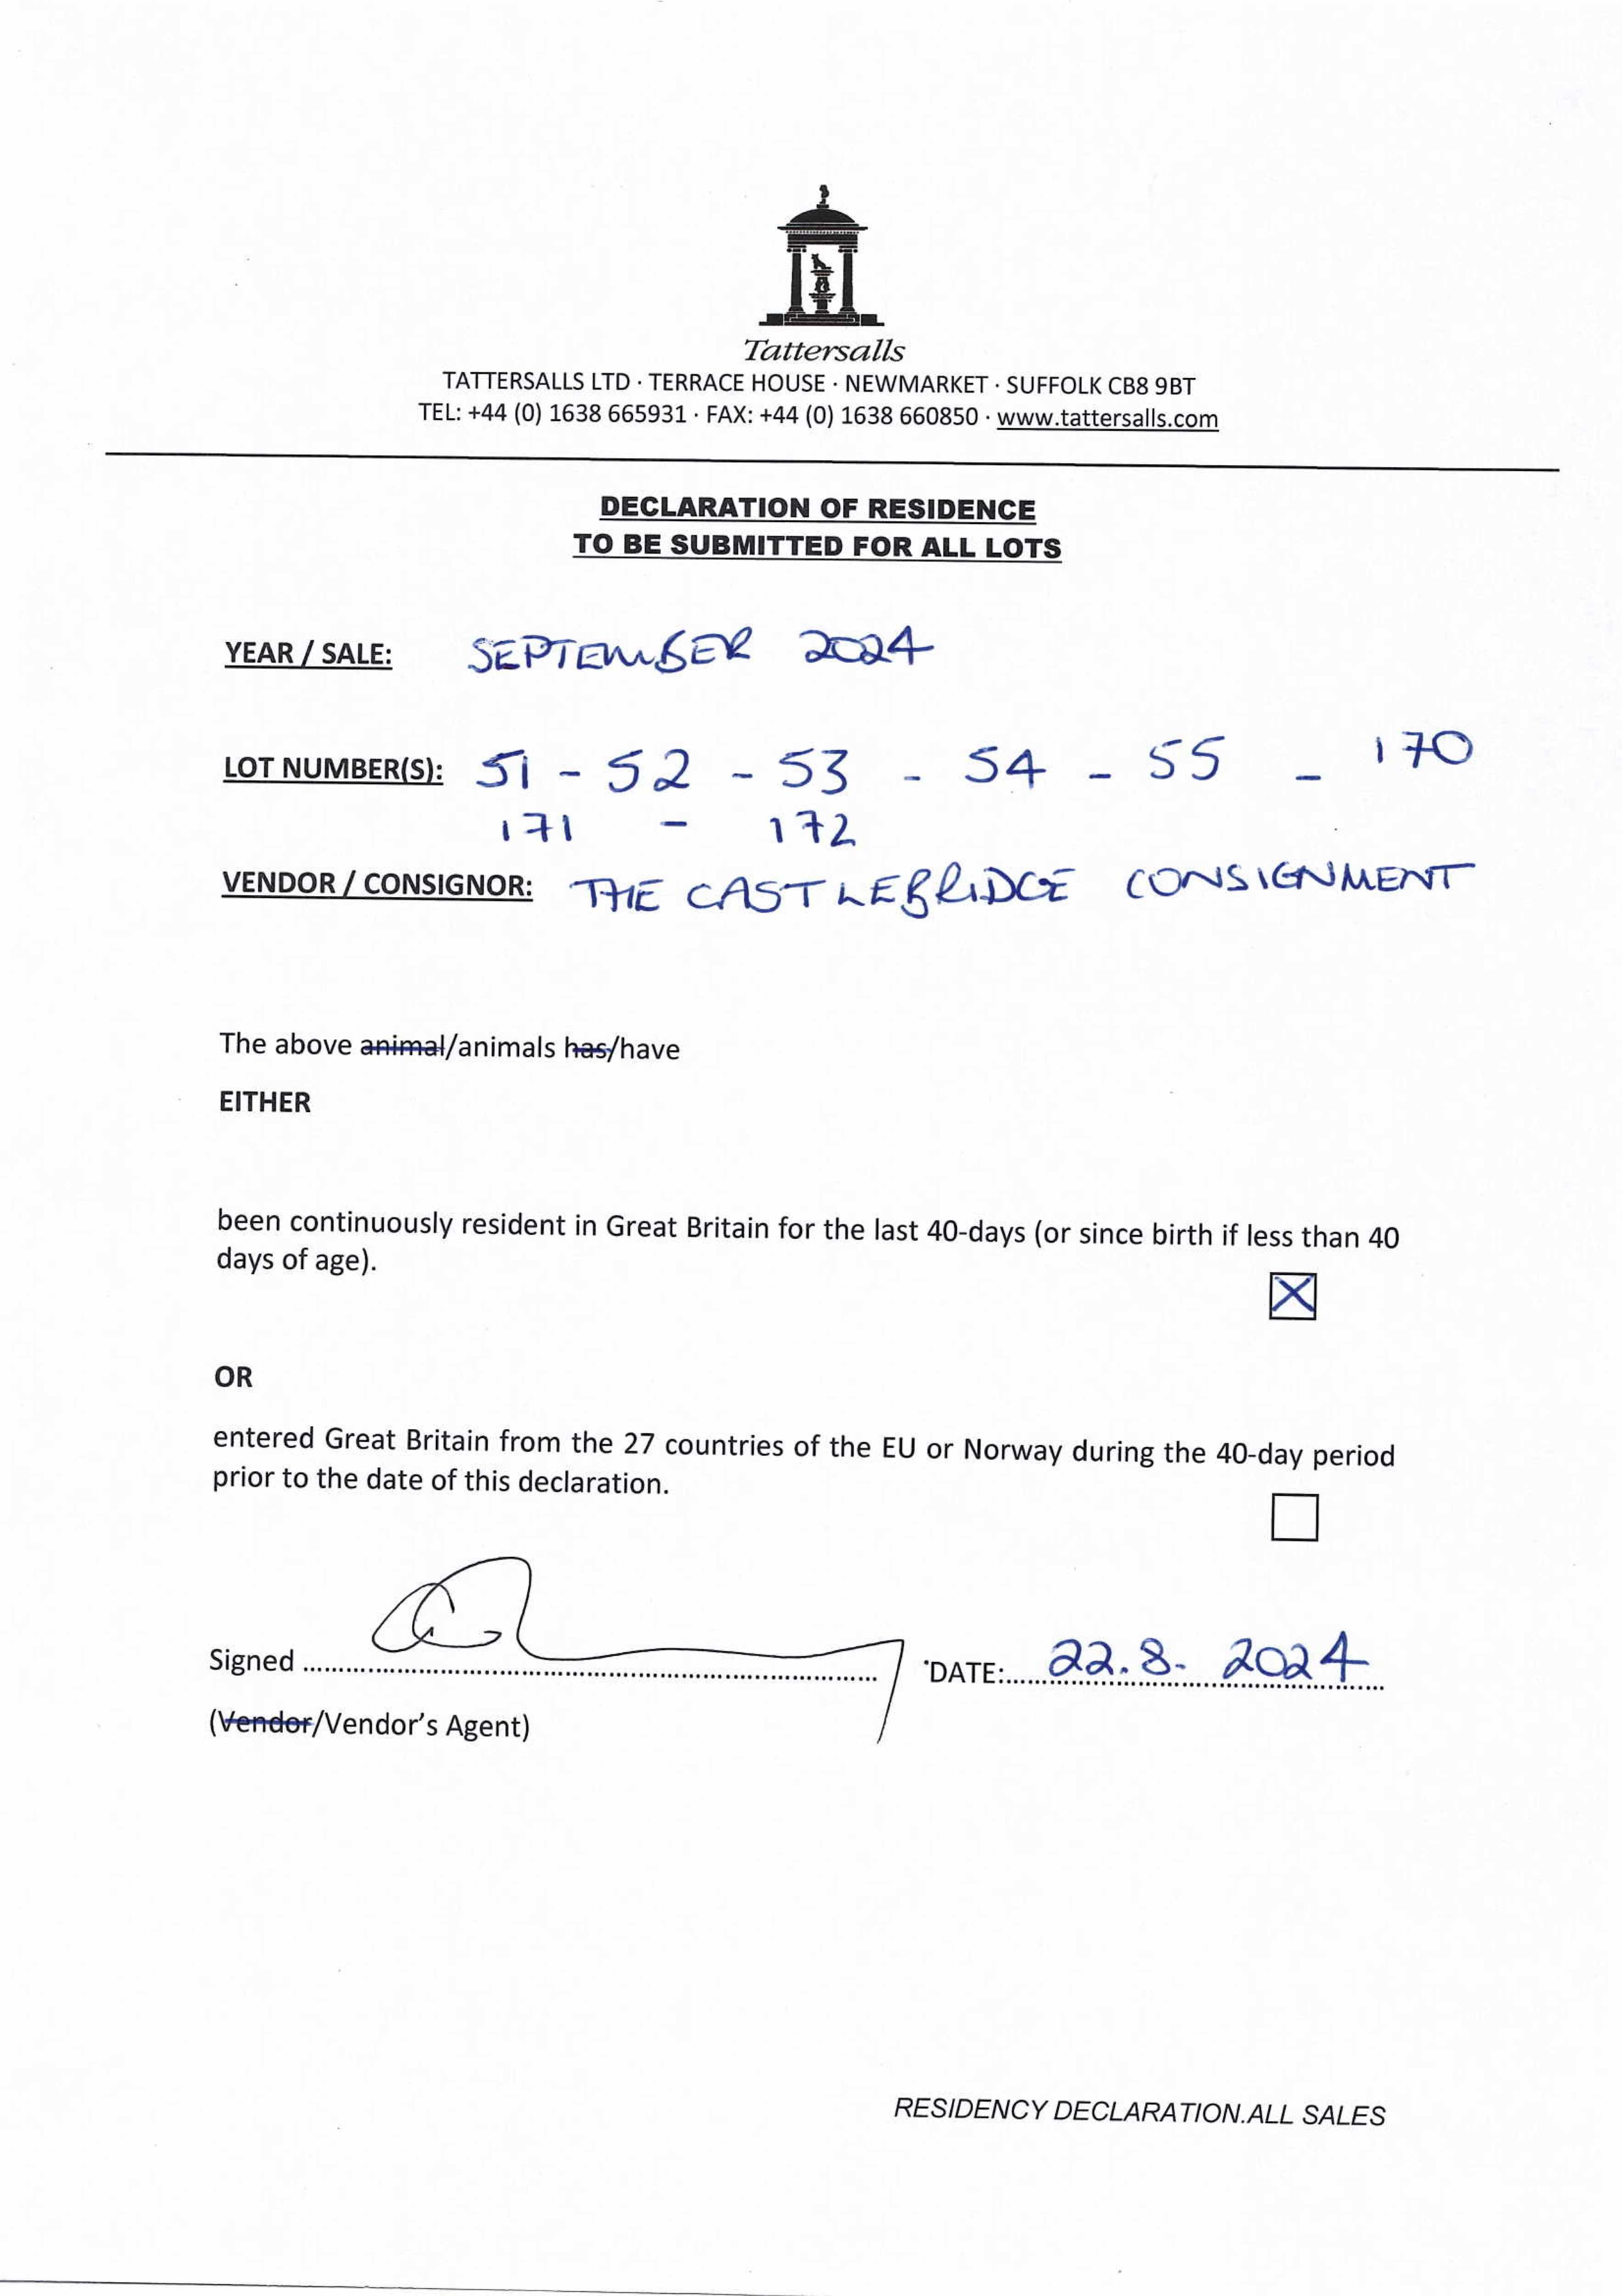 Tattersalls
TATTERSALLS LTD · TERRACE HOUSE · NEWMARKET · SUFFOLK CB8 9BT
TEL: +44 (0) 1638 665931 · FAX: +44 (0) 1638 660850 · www.tattersalls.com
DECLARATION OF RESIDENCE
TO BE SUBMITTED FOR ALL LOTS
YEAR / SALE: SEPTEMBER 2024
LOT NUMBER(S): 51 - 52 - 53 - 54 - 55 - 170
171 - 172
VENDOR / CONSIGNOR: THE CASTLEBRIDGE CONSIGNMENT
The above animal/animals has/have
EITHER
been continuously resident in Great Britain for the last 40-days (or since birth if less than 40
days of age).
OR
entered Great Britain from the 27 countries of the EU or Norway during the 40-day period
prior to the date of this declaration.
Signed ........ DATE: 22.8. 2024
(Vendor/Vendor's Agent)
RESIDENCY DECLARATION.ALL SALES